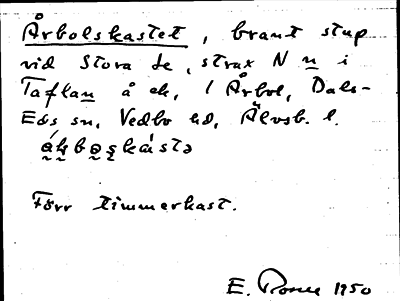 Årbolskastet, brant stup
vid Stora Le, strax N n i
Taflan å ek, i Årbol, Dals-
Eds sn, Vedbo hd, Älvsb. l.
Förr timmerkast.
E. 1950